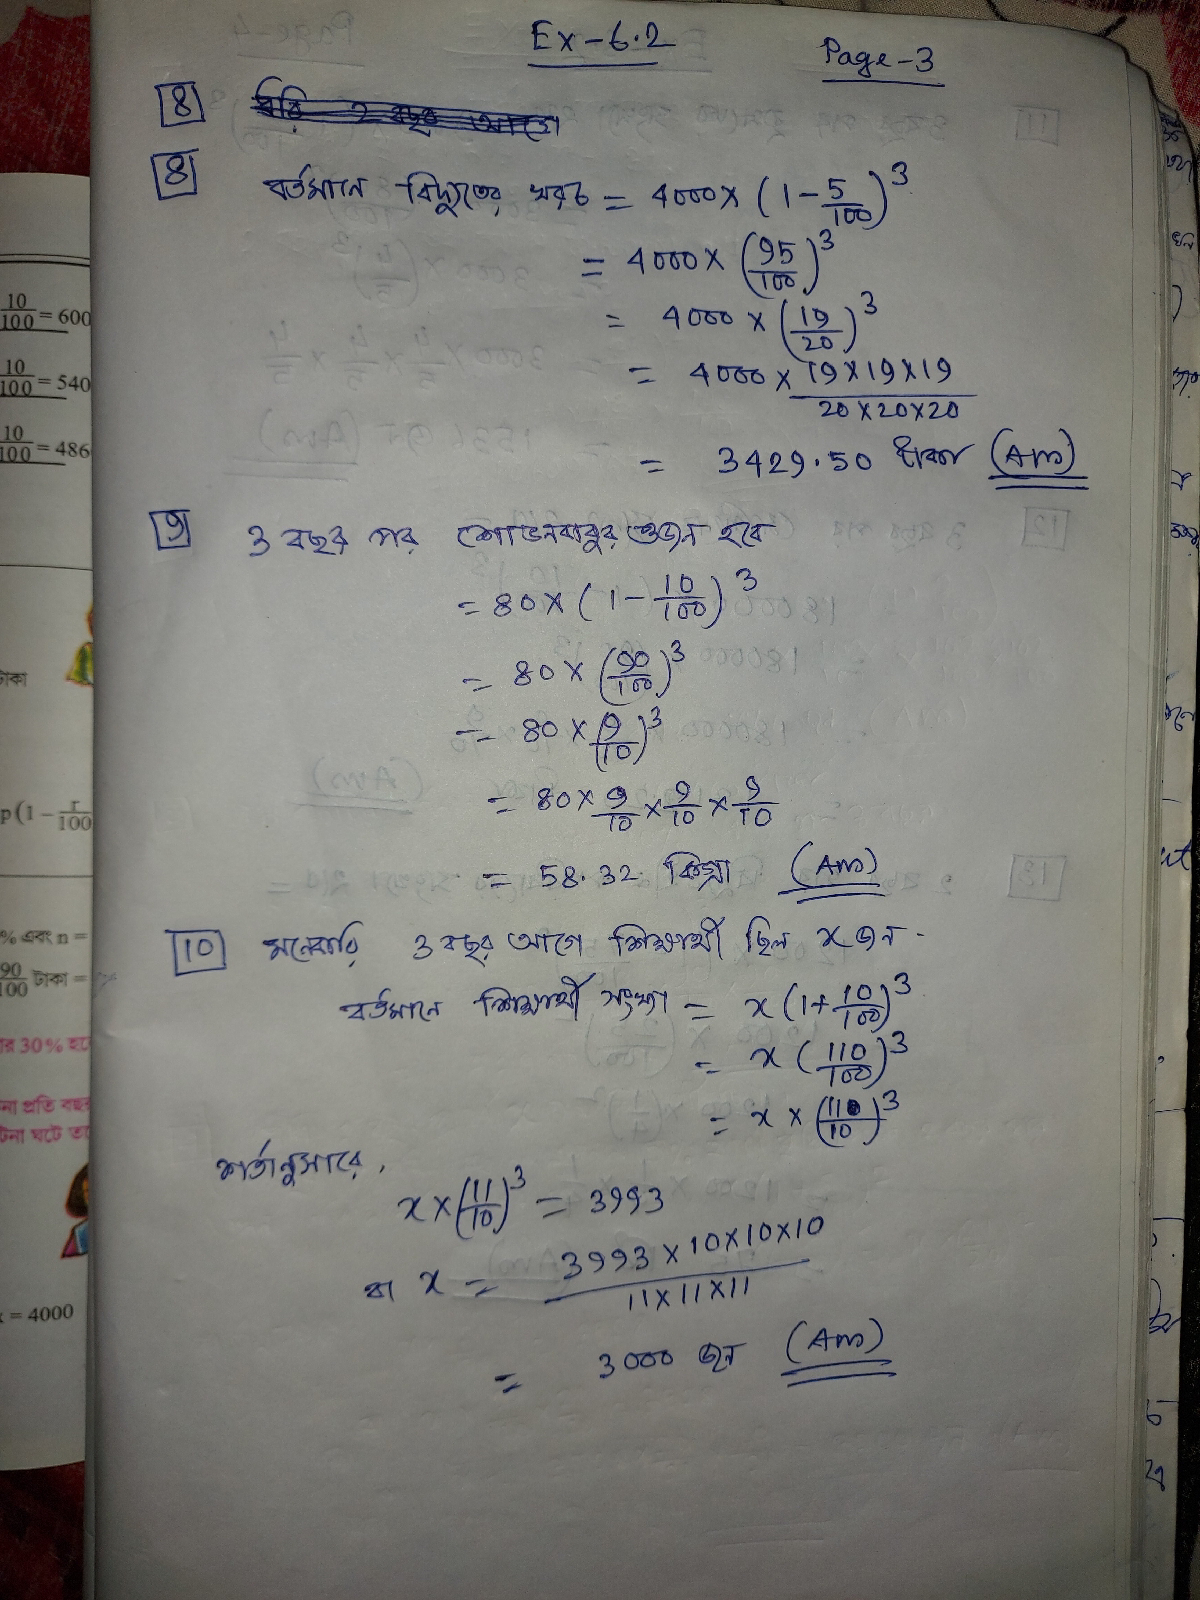 Ex-6.2
Page-3
8
8 বর্তমানে বিদ্যুতের খরচ = 4000 × (1 - 5/100)^3
= 4000 × (95/100)^3
= 4000 × (19/20)^3
= 4000 × 19×19×19/20×20×20
= 3429.50 টাকা (Ans)
9 3 বছর পর শোভনবাবুর ওজন হবে
= 80 × (1 - 10/100)^3
= 80 × (90/100)^3
= 80 × (9/10)^3
= 80 × 9/10 × 9/10 × 9/10
= 58.32 কিগ্রা (Ans)
10 মনেকরি 3 বছর আগে শিক্ষার্থী ছিল x জন
বর্তমানে শিক্ষার্থী সংখ্যা = x (1 + 10/100)^3
= x (110/100)^3
= x × (11/10)^3
শর্তানুসারে,
x × (11/10)^3 = 3993
বা x = 3993 × 10×10×10/11×11×11
= 3000 জন (Ans)
10/100 = 600
10/100 = 540
10/100 = 486
টাকা
p(1 - r/100
% এবং n =
90/100 টাকা =
র 30%
না প্রতি বছর
টনা ঘটে
x = 4000